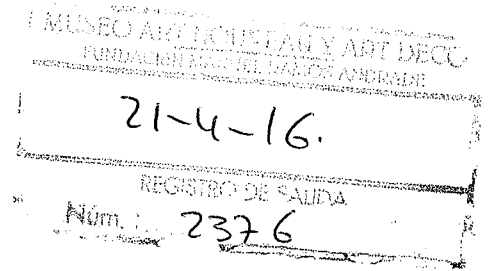 MUSEO ART NOUVEAU Y ART DECO
FUNDACIÓN MANUEL RAMOS ANDRADE
21-4-16.
REGISTRO DE SALIDA
Núm.: 2376